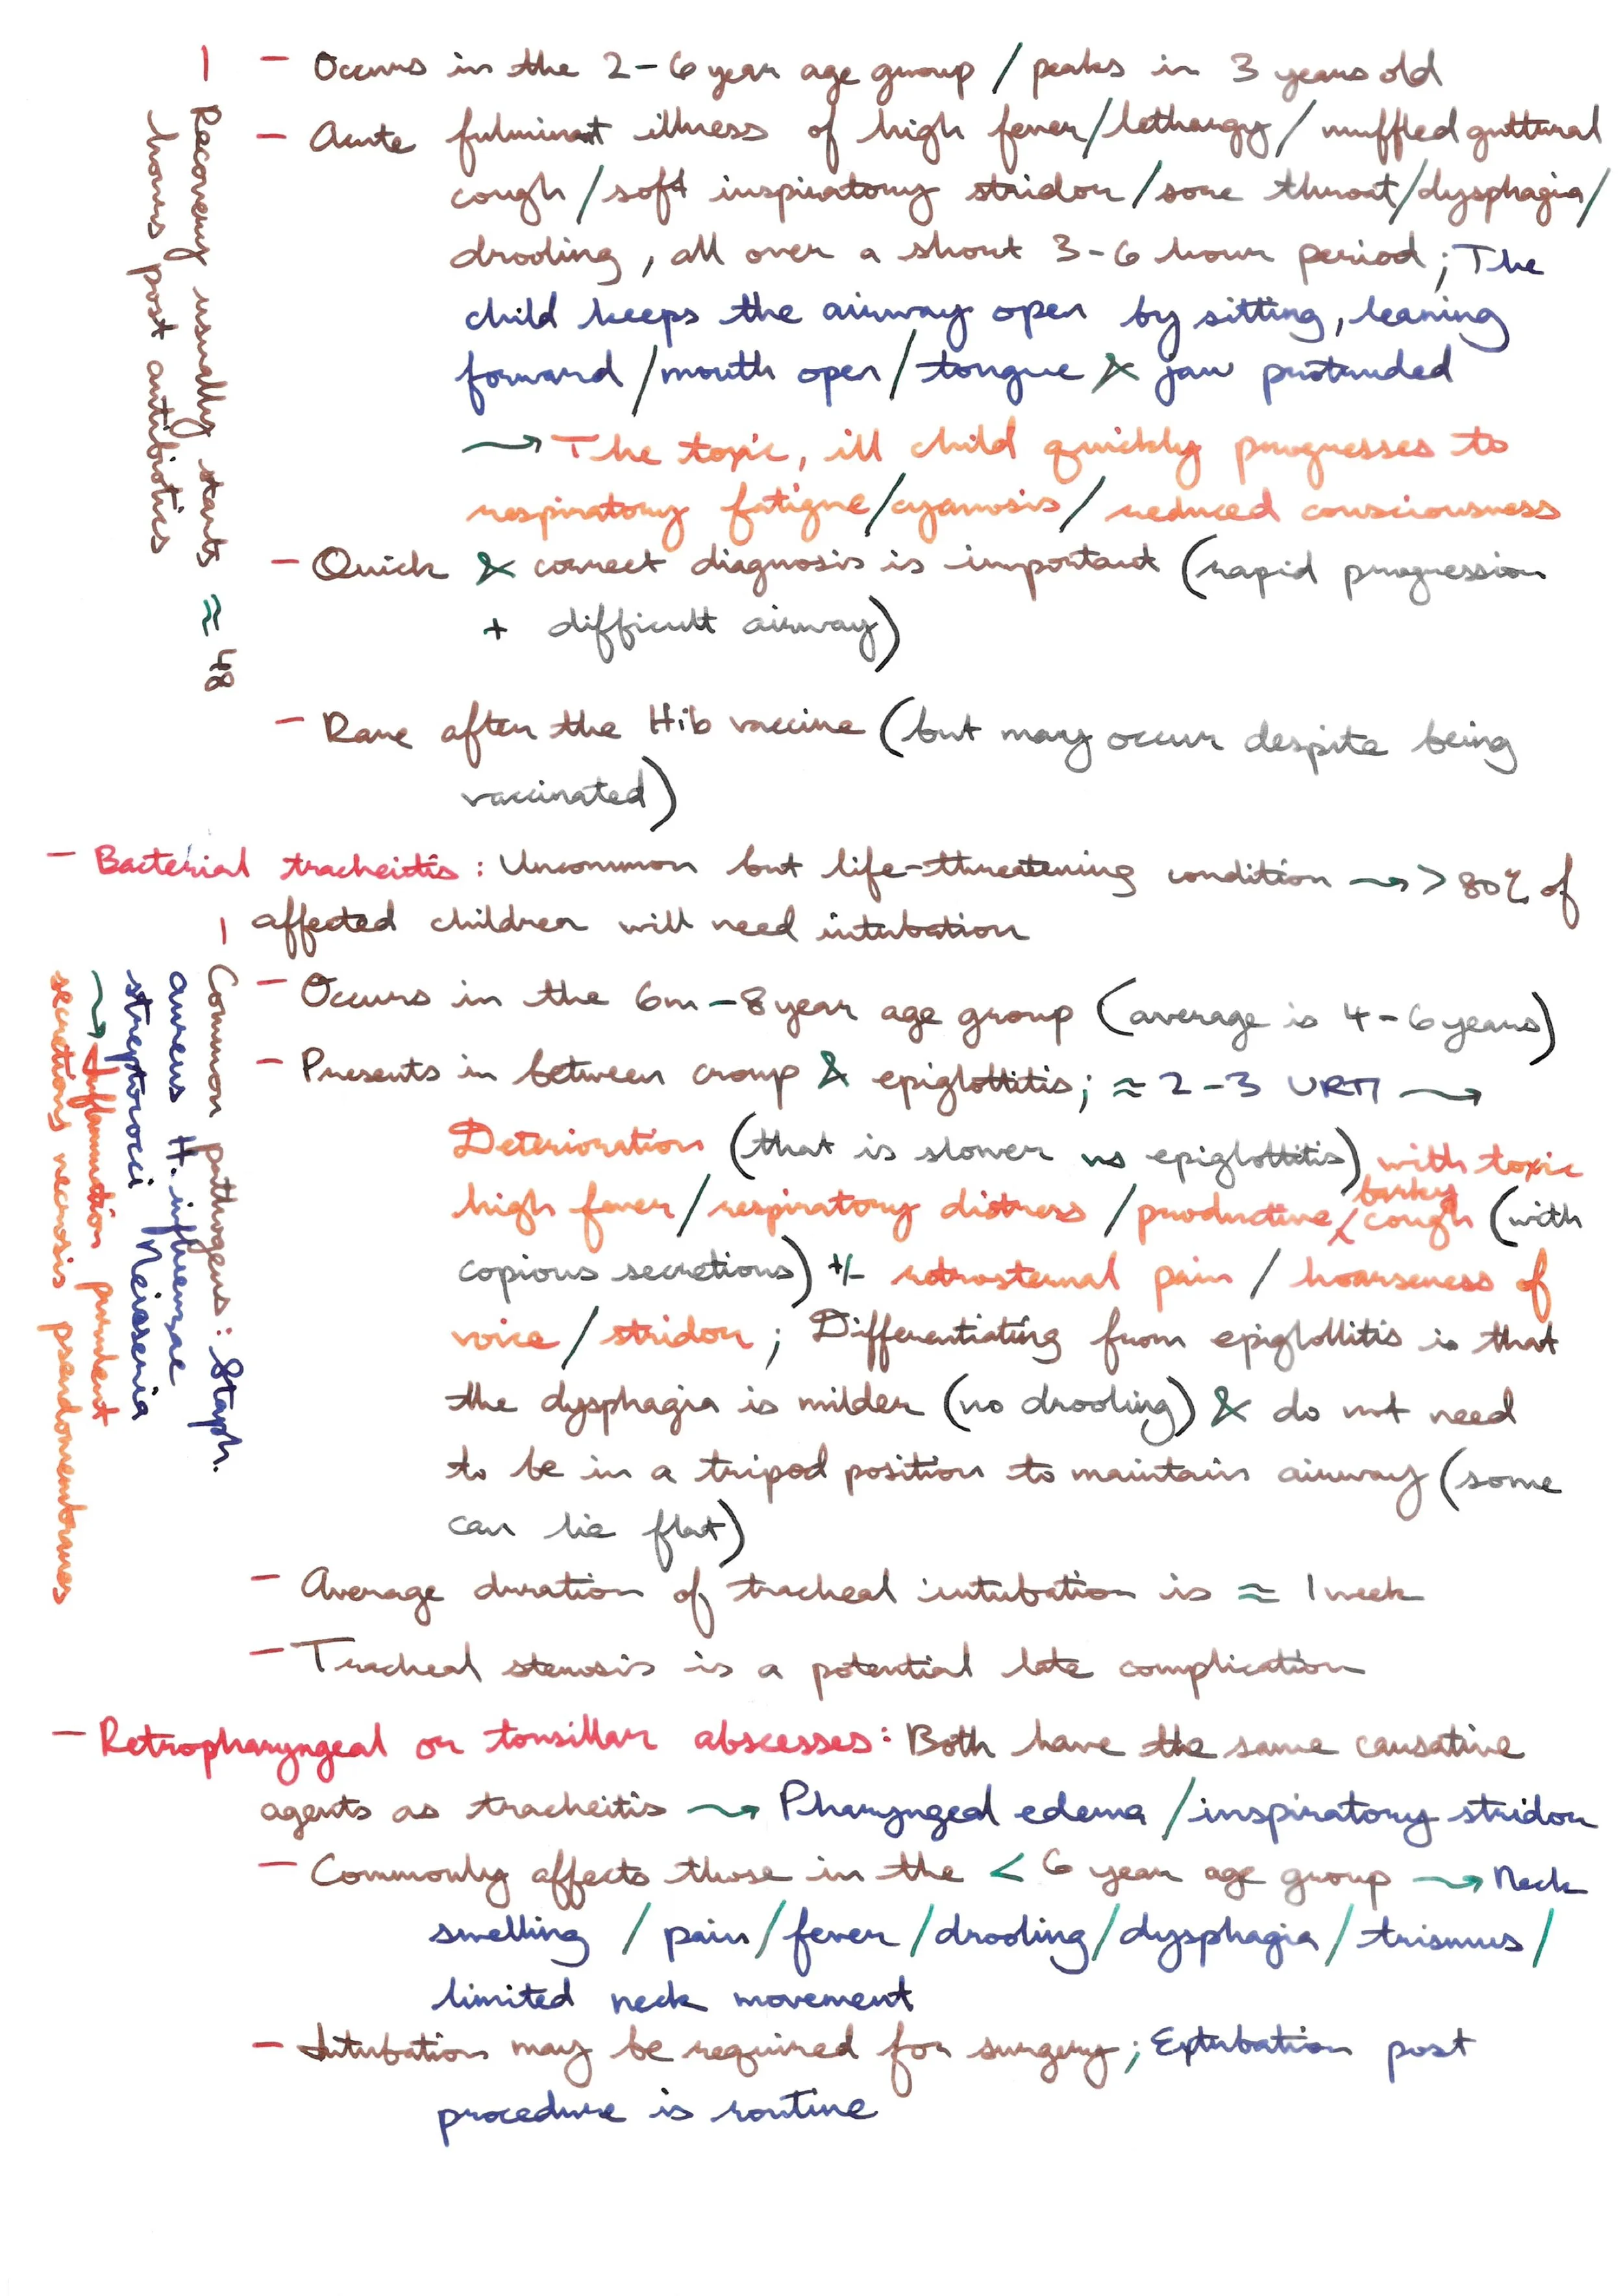 - Occurs in the 2-6 year age group / peaks in 3 years old
- Acute fulminant illness of high fever/lethargy/muffled guttural
cough/soft inspiratory stridor/sore throat/dysphagia/
drooling, all over a short 3-6 hour period; The
child keeps the airway open by sitting, leaning
forward/mouth open/tongue & jaw protruded
→ The toxic, ill child quickly progresses to
respiratory fatigue/cyanosis/reduced consciousness
- Quick & correct diagnosis is important (rapid progression
+ difficult airway)
- Rare after the Hib vaccine (but may occur despite being
vaccinated)
- Recovery usually starts ≈ 48
hours post antibiotics
- Bacterial tracheitis: Uncommon but life-threatening condition → > 80% of
affected children will need intubation
- Occurs in the 6m-8year age group (average is 4-6years)
- Presents in between croup & epiglottitis; ≈ 2-3 URTI →
Deterioration (that is slower vs epiglottitis) with toxic
high fever/respiratory distress/productive barky cough (with
copious secretions) +/- retrosternal pain / hoarseness of
voice/stridor; Differentiating from epiglottitis is that
the dysphagia is milder (no drooling) & do not need
to be in a tripod position to maintain airway (some
can lie flat)
- Average duration of tracheal intubation is ≈ 1 week
- Tracheal stenosis is a potential late complication
- Common pathogens: Staph.
aureus H. influenzae
streptococci Neisseria
→ Inflammation purulent
secretions necrosis pseudomembranes
- Retropharyngeal or tonsillar abscesses: Both have the same causative
agents as tracheitis → Pharyngeal edema/inspiratory stridor
- Commonly affects those in the < 6 year age group → Neck
swelling / pain/fever/drooling/dysphagia/trismus/
limited neck movement
- Intubation may be required for surgery; Extubation post
procedure is routine